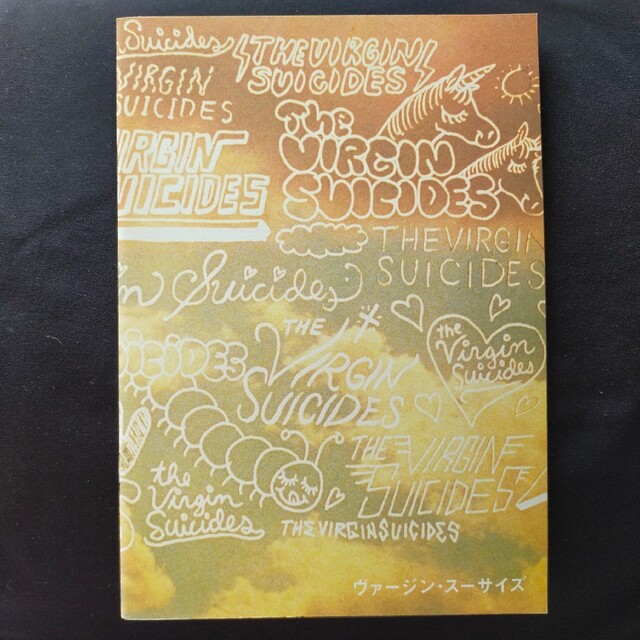 Suicides
THE VIRGIN
SUICIDES
VIRGIN
SUICIDES
The
VIRGIN
SUICIDES
VIRGIN
SUICIDES
THE VIRGIN
SUICIDES
Suicides
THE
VIRGIN
SUICIDES
the
Virgin
Suicides
THE VIRGIN
SUICIDES
the
Virgin
Suicides
THE VIRGIN SUICIDES
ヴァージン・スーサイズ